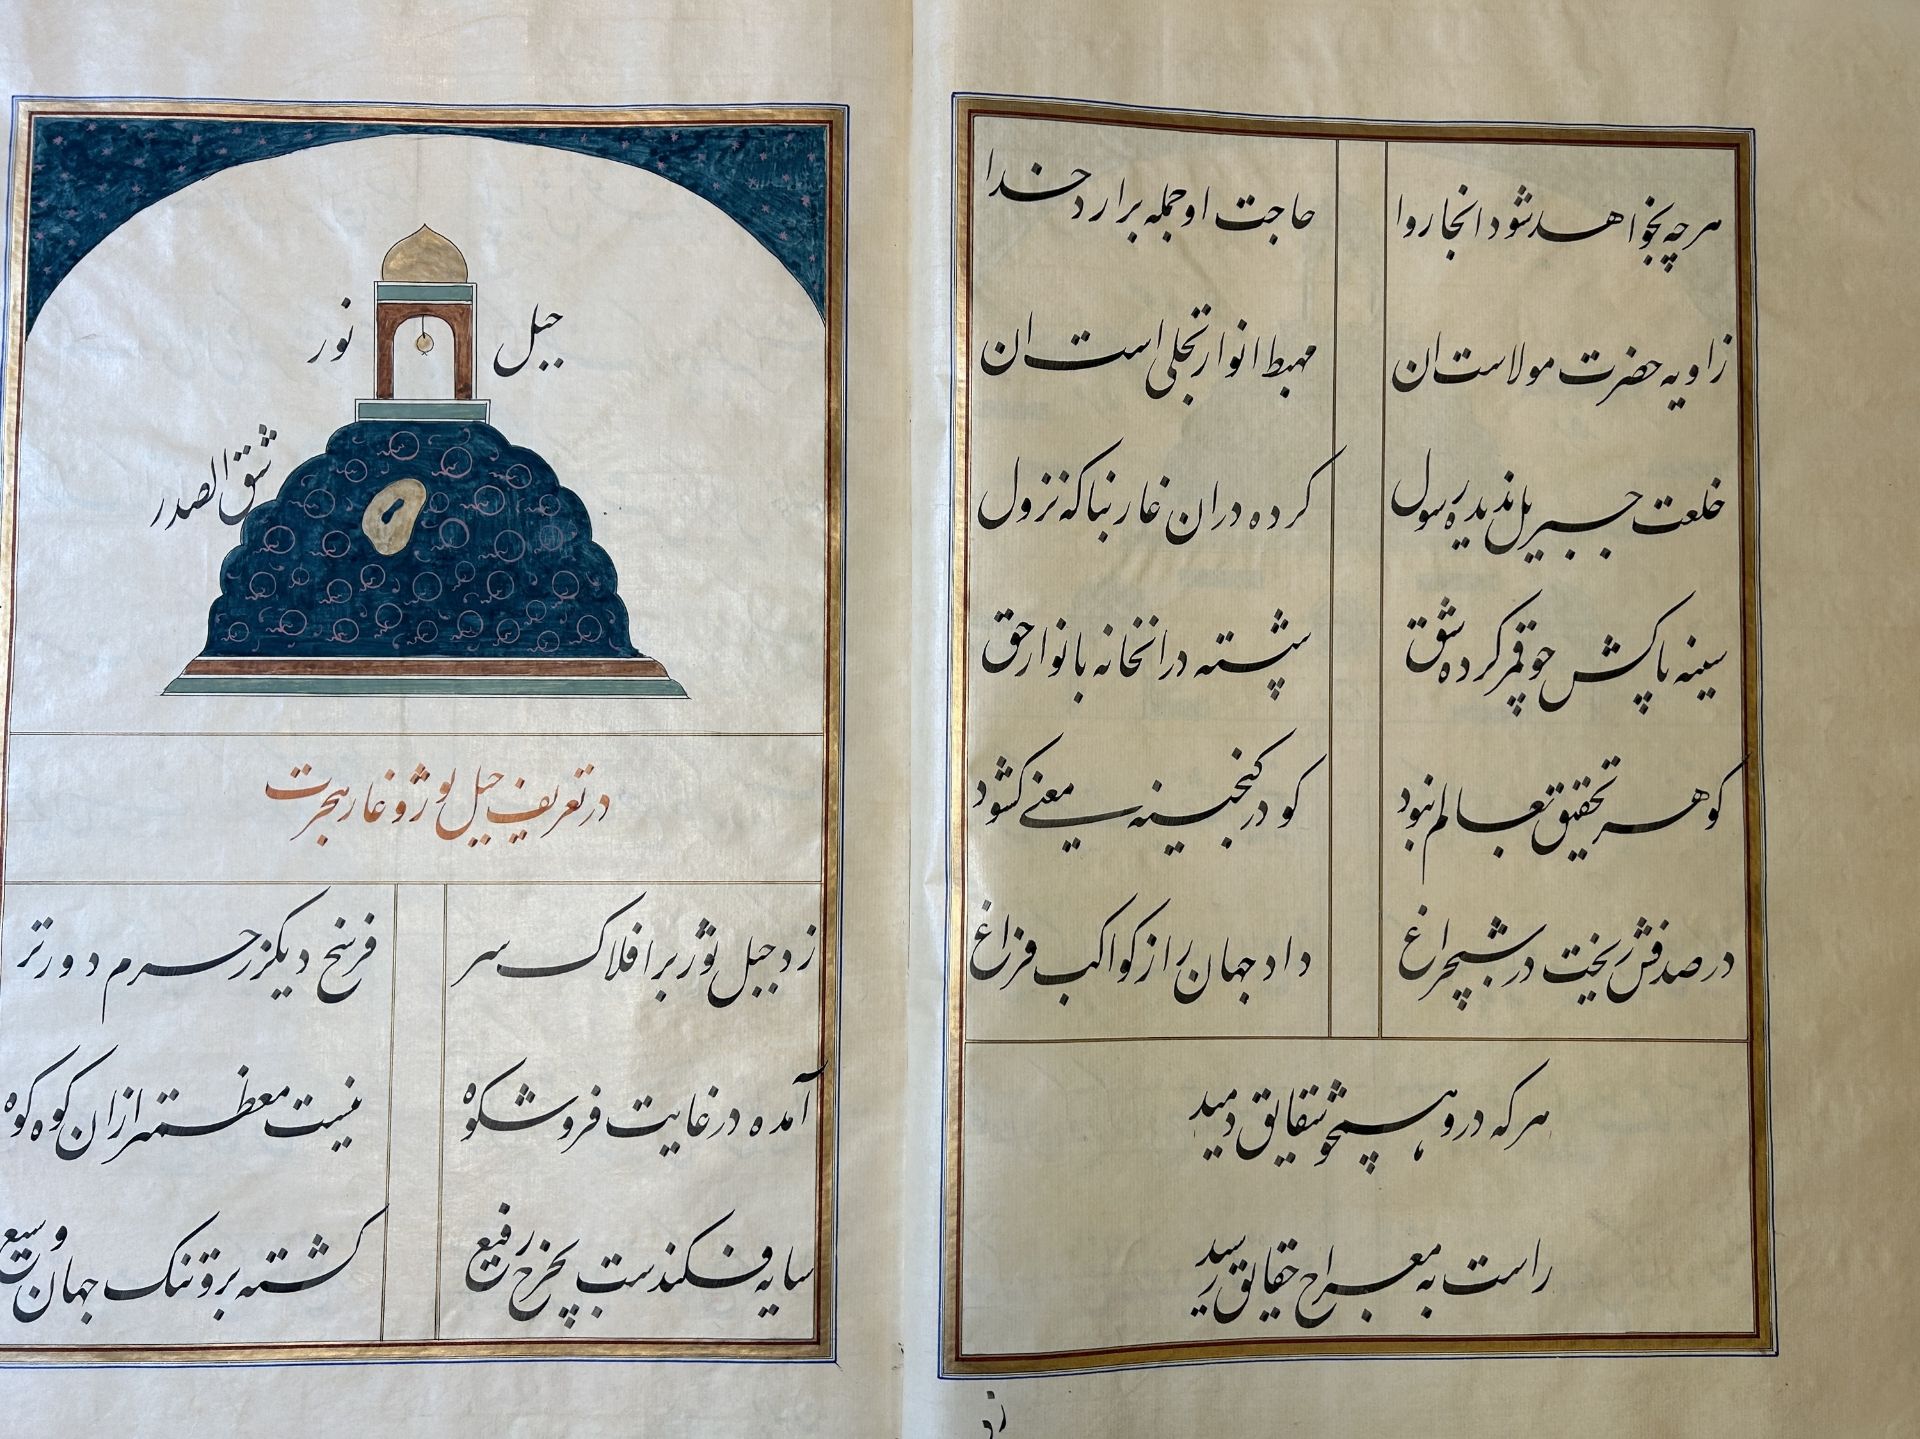 هرچه بخواهد شود انجا روا حاجت او جمله برارد خدا
زاویه حضرت مولاست ان مهبط انوار تجلی است ان
خلعت جبریل ندیده رسول کرده دران غار بناکه نزول
سینه پاکش چو قمر کرده شق شسته در انخانه بانوار حق
کوهر تحقیق تعالم نبود کو در کنجینه معنے کشود
در صدفش ریخت در شبچراغ داد جهان را ز کواکب فراغ
هرکه درو همچو شقایق دمید
راست به معراج حقایق رسید
زد
جبل نور
شق الصدر
در تعریف جبل ثور و غار هجرت
زد جبل ثور بر افلاک سر فرسخ دیکر ز حرم دورتر
آمده در غایت فر و شکوه نیست معظمتر ازان کوه کوه
سایه فکندست بچرخ رفیع کشته برو تنک جهان وسیع